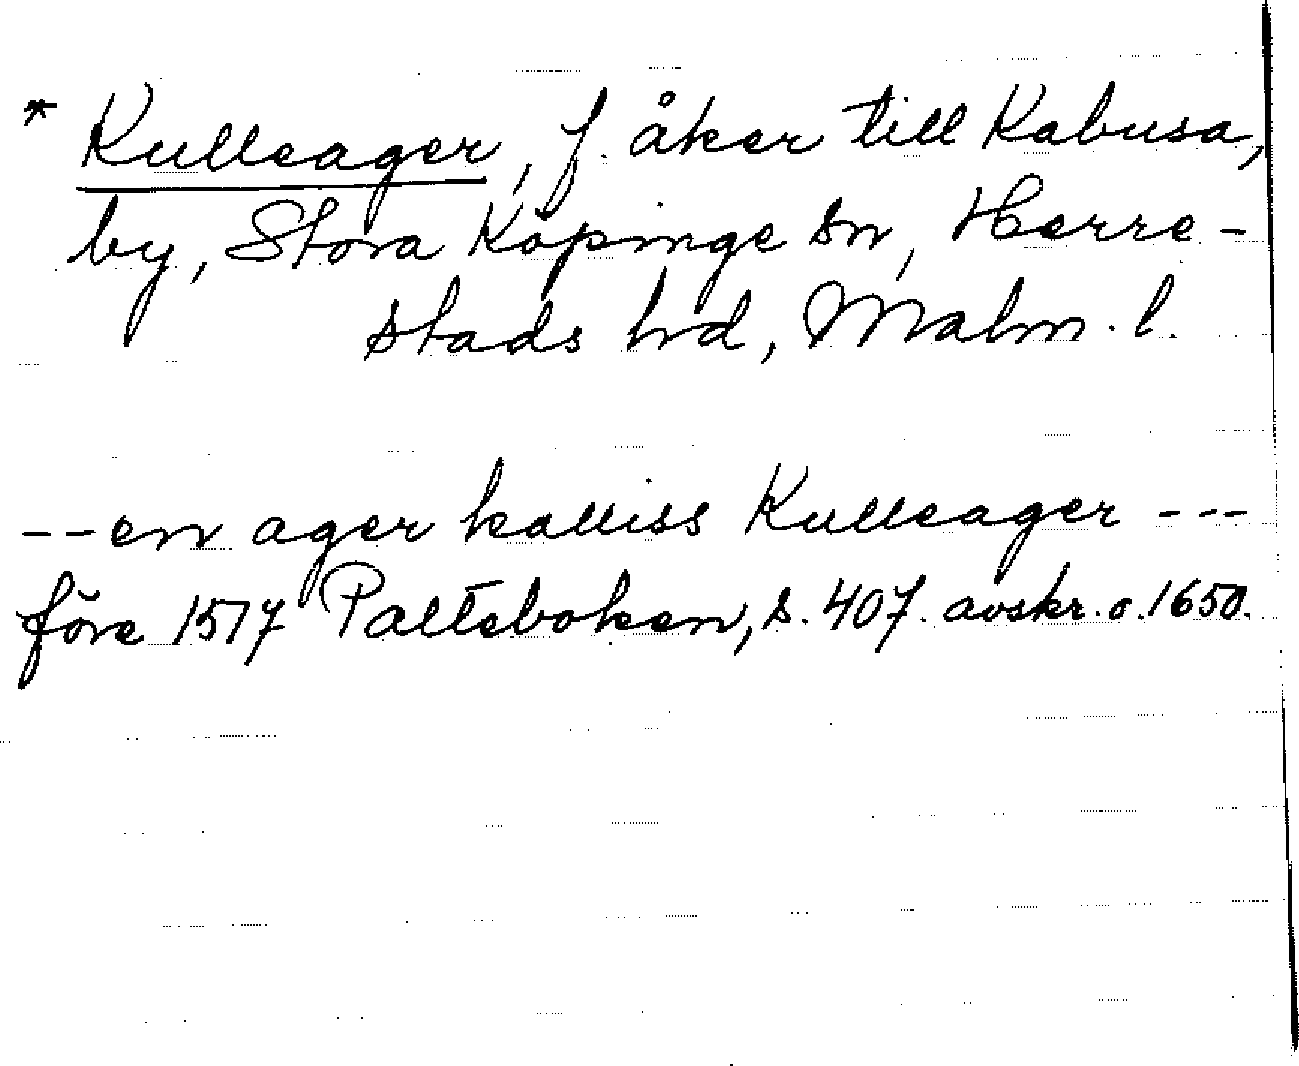 * Kulleager, f. åker till Kabusa,
by, Stora Köpinge sn, Herre-
stads hrd, Malm. l.
-- en ager kalliss Kulleager ---
före 1517 Palteboken, s. 407. avskr. o. 1650.